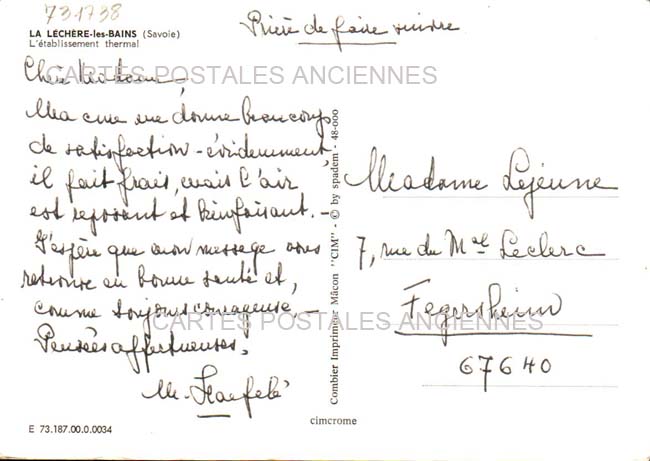 731738
Prière de faire suivre
LA LÉCHÈRE-les-BAINS (Savoie)
L'établissement thermal
CARTES POSTALES ANCIENNES
Chère Madame,
Ma cure me donne beaucoup
de satisfaction - évidemment,
il fait frais, mais l'air
est reposant et bienfaisant. -
J'espère que mon message vous
retrouve en bonne santé et,
comme toujours courageuse. -
CARTES POSTALES ANCIENNES
Pensées affectueuses,
M.
E 73.187.00.0.0034
Combier Imprimeur Mâcon "CIM" - © by spadem - 48-000
cimcrome
Madame Lejeune
7, rue du Mal Leclerc
Fegersheim
67640